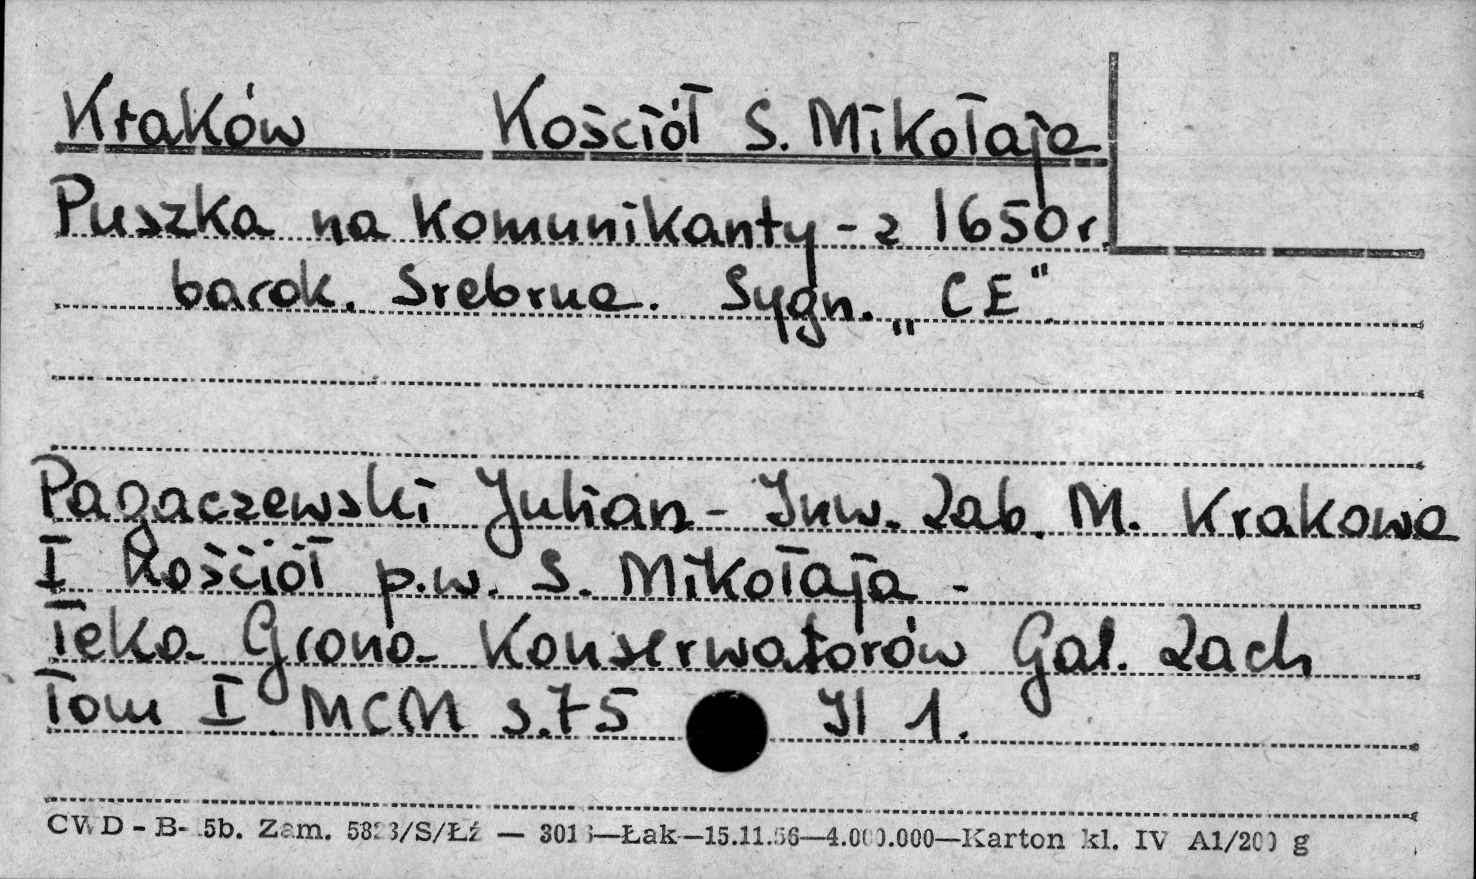 Kraków Kościół S. Mikołaja
Puszka na komunikanty - z 1650 r.
barok. Srebrna. Sygn. „CE"
Pagaczewski Julian - Inw. Zab. M. Krakowa
I Kościół p.w. S. Mikołaja -
Teka Grona Konserwatorów Gal. Zach
Tom I MCM s. 75 Il 1.
CWD - B- 5b. Zam. 5823/S/Łź — 3016—Łak—15.11.56—4.000.000—Karton kl. IV A1/200 g